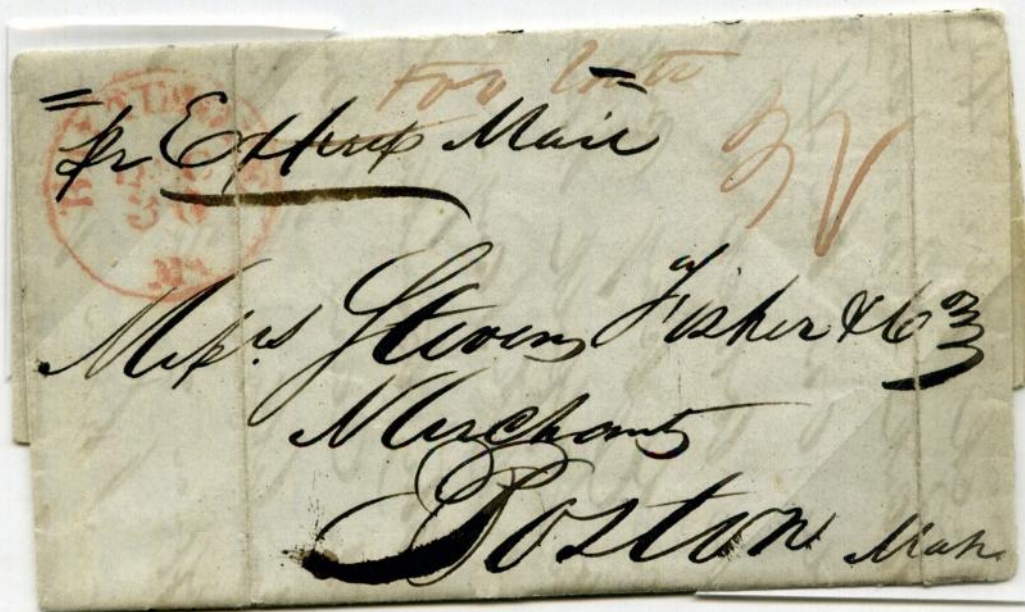 pr Express Mail
Messrs Stevens Fisher & Co
Merchants
Boston Mass
Md